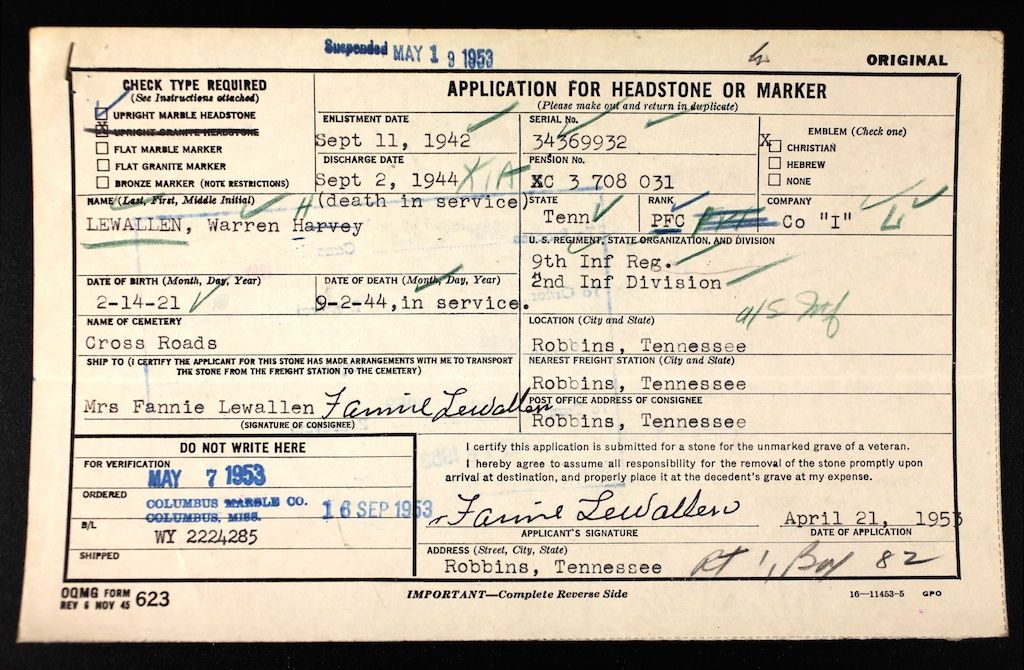 Suspended MAY 19 1953
ORIGINAL
CHECK TYPE REQUIRED
(See Instructions attached)
UPRIGHT MARBLE HEADSTONE
X UPRIGHT GRANITE HEADSTONE
FLAT MARBLE MARKER
FLAT GRANITE MARKER
BRONZE MARKER (NOTE RESTRICTIONS)
APPLICATION FOR HEADSTONE OR MARKER
(Please make out and return in duplicate)
ENLISTMENT DATE
Sept 11, 1942
DISCHARGE DATE
Sept 2, 1944
(death in service)
SERIAL No.
34369932
PENSION No.
XC 3 708 031
EMBLEM (Check one)
X CHRISTIAN
HEBREW
NONE
NAME (Last, First, Middle Initial)
LEWALLEN, Warren Harvey
H
STATE
Tenn
RANK
PFC
COMPANY
Co "I"
U. S. REGIMENT, STATE ORGANIZATION, AND DIVISION
9th Inf Reg.
2nd Inf Division
DATE OF BIRTH (Month, Day, Year)
2-14-21
DATE OF DEATH (Month, Day, Year)
9-2-44, in service.
NAME OF CEMETERY
Cross Roads
LOCATION (City and State)
Robbins, Tennessee
SHIP TO (I CERTIFY THE APPLICANT FOR THIS STONE HAS MADE ARRANGEMENTS WITH ME TO TRANSPORT
THE STONE FROM THE FREIGHT STATION TO THE CEMETERY)
NEAREST FREIGHT STATION (City and State)
Robbins, Tennessee
Mrs Fannie Lewallen Fannie Lewallen
(SIGNATURE OF CONSIGNEE)
POST OFFICE ADDRESS OF CONSIGNEE
Robbins, Tennessee
DO NOT WRITE HERE
FOR VERIFICATION
MAY 7 1953
ORDERED
COLUMBUS MARBLE CO.
COLUMBUS, MISS.
16 SEP 1953
B/L
WY 2224285
SHIPPED
I certify this application is submitted for a stone for the unmarked grave of a veteran.
I hereby agree to assume all responsibility for the removal of the stone promptly upon
arrival at destination, and properly place it at the decedent's grave at my expense.
Fannie Lewallen
APPLICANT'S SIGNATURE
April 21, 1953
DATE OF APPLICATION
ADDRESS (Street, City, State)
Robbins, Tennessee Rt 1, Box 82
OQMG FORM
REV 6 NOV 45 623
IMPORTANT—Complete Reverse Side
16—11453-5 GPO